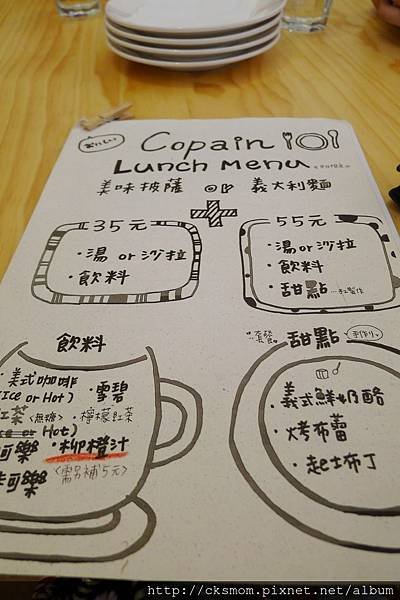 おいしい
Copain
Lunch Menu
美味披薩 or 義大利麵
35元
·湯 or 沙拉
·飲料
55元
·湯 or 沙拉
·飲料
·甜點
飲料
·美式咖啡
(Ice or Hot)
·雪碧
紅茶<無糖>
·檸檬紅茶
Hot)
可樂
·柳橙汁
可樂
<需另補5元>
甜點
手作り
·義式鮮奶酪
·烤布蕾
·起士布丁
http://cksmom.pixnet.net/album